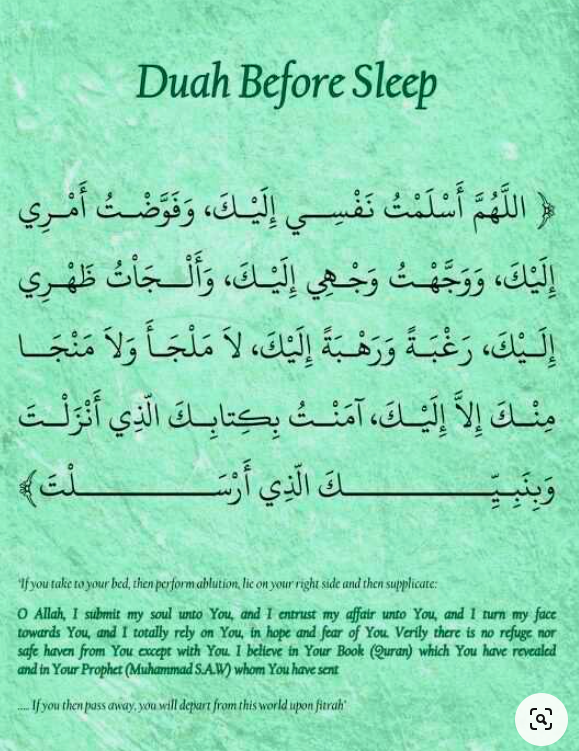 Duah Before Sleep
﴿ اللَّهُمَّ أَسْلَمْتُ نَفْسِي إِلَيْكَ، وَفَوَّضْتُ أَمْرِي
إِلَيْكَ، وَوَجَّهْتُ وَجْهِي إِلَيْكَ، وَأَلْجَاْتُ ظَهْرِي
إِلَيْكَ، رَغْبَةً وَرَهْبَةً إِلَيْكَ، لاَ مَلْجَأَ وَلاَ مَنْجَا
مِنْكَ إِلاَّ إِلَيْكَ، آمَنْتُ بِكِتابِكَ الَّذِي أَنْزَلْتَ
وَبِنَبِيِّكَ الَّذِي أَرْسَلْتَ ﴾
'If you take to your bed, then perform ablution, lie on your right side and then supplicate:
O Allah, I submit my soul unto You, and I entrust my affair unto You, and I turn my face
towards You, and I totally rely on You, in hope and fear of You. Verily there is no refuge nor
safe haven from You except with You. I believe in Your Book (Quran) which You have revealed
and in Your Prophet (Muhammad S.A.W) whom You have sent
..... If you then pass away, you will depart from this world upon fitrah'